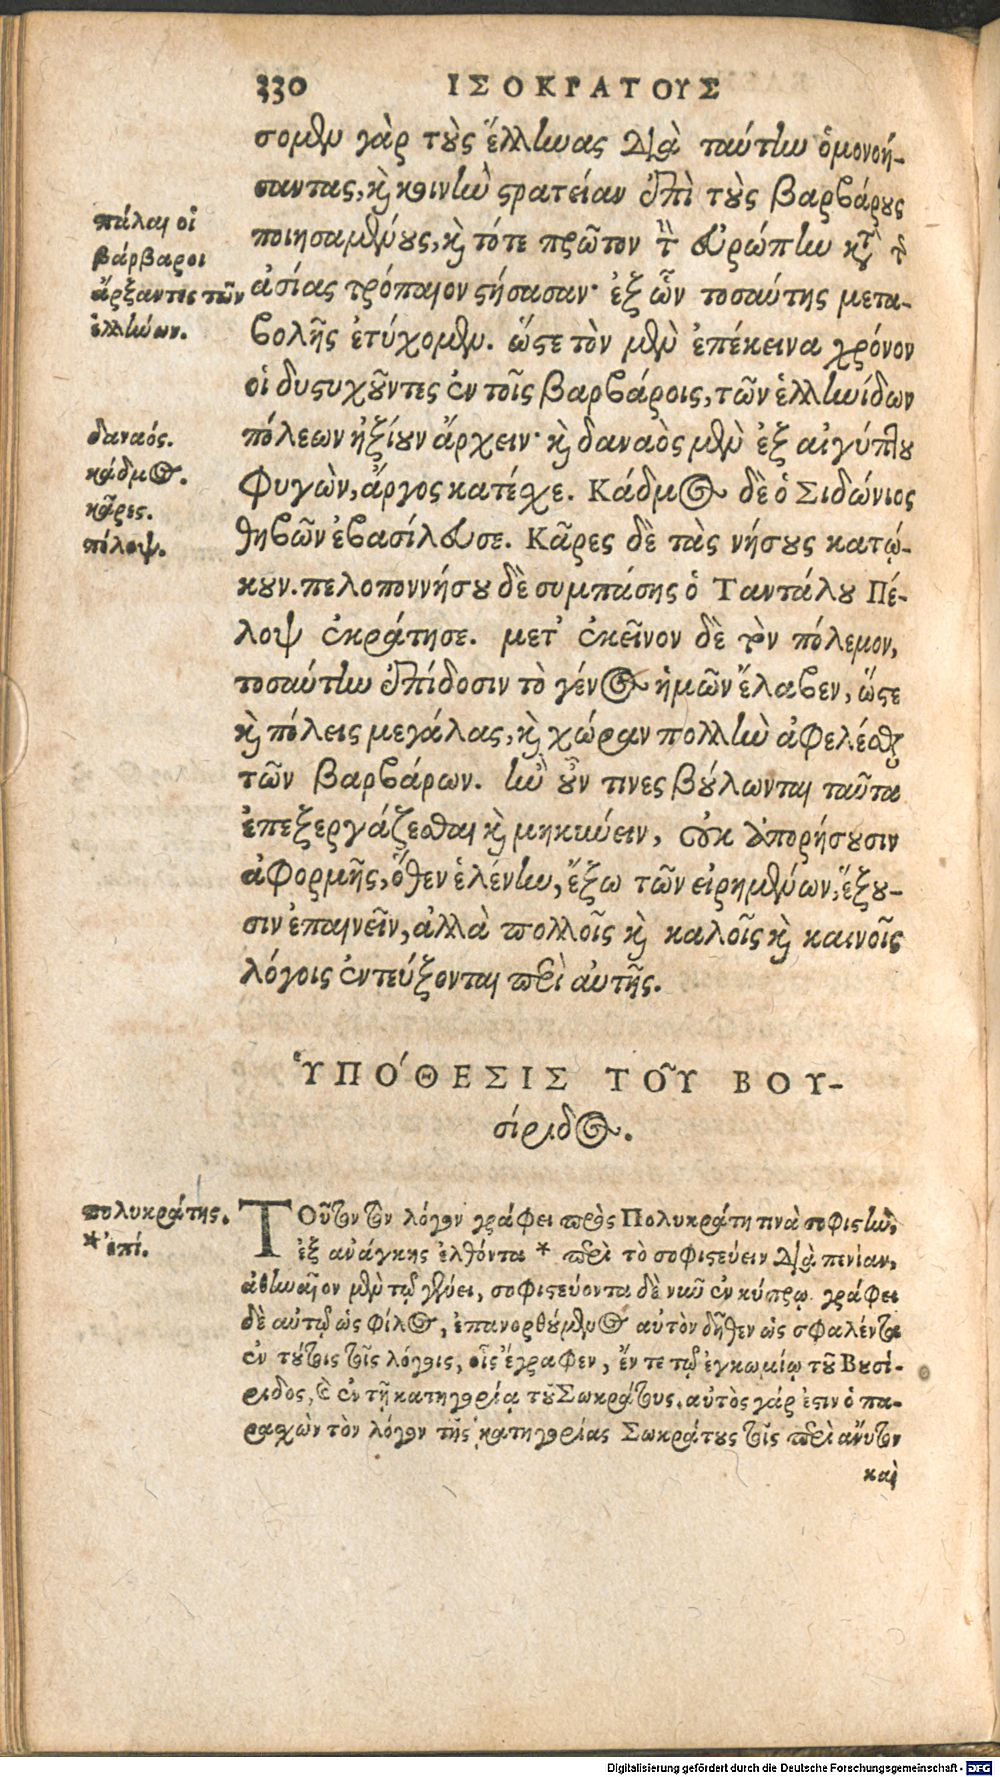 330 ΙΣΟΚΡΑΤΟΥΣ
σομεν γὰρ τοὺς ἕλληνας διὰ ταύτην ὁμονοή-
σαντας, καὶ κοινὴν στρατείαν ἐπὶ τοὺς βαρβάρους
ποιησαμένους, καὶ τότε πρῶτον τὴν εὐρώπην κατὰ τῆς
ἀσίας τρόπαιον στήσασαν· ἐξ ὧν τοσαύτης μετα-
βολῆς ἐτύχομεν. ὥστε τὸν μὲν ἐπέκεινα χρόνον
οἱ δυστυχοῦντες ἐν τοῖς βαρβάροις, τῶν ἑλληνίδων
πόλεων ἠξίουν ἄρχειν· καὶ δαναὸς μὲν ἐξ αἰγύπτου
φυγὼν, ἄργος κατέσχε. Κάδμος δὲ ὁ Σιδώνιος
θηβῶν ἐβασίλευσε. Κᾶρες δὲ τὰς νήσους κατῴ-
κουν. πελοποννήσου δὲ συμπάσης ὁ Ταντάλου Πέ-
λοψ ἐκράτησε. μετ' ἐκεῖνον δὲ τὸν πόλεμον,
τοσαύτην ἐπίδοσιν τὸ γένος ἡμῶν ἔλαβεν, ὥστε
καὶ πόλεις μεγάλας, καὶ χώραν πολλὴν ἀφελέσθαι
τῶν βαρβάρων. ἢν οὖν τινες βούλωνται ταῦτα
ἐπεξεργάζεσθαι καὶ μηκύνειν, οὐκ ἀπορήσουσιν
ἀφορμῆς, ὅθεν ἑλένην, ἔξω τῶν εἰρημένων, ἕξου-
σιν ἐπαινεῖν, ἀλλὰ πολλοῖς καὶ καλοῖς καὶ καινοῖς
λόγοις ἐντεύξονται περὶ αὐτῆς.
πάλαι οἱ
βάρβαροι
ἄρξαντες τῶν
ἑλλήνων.
δαναός.
κάδμος.
κᾶρες.
πέλοψ.
ὙΠΌΘΕΣΙΣ ΤΟΥ͂ ΒΟΥ-
σίριδος.
πολυκράτης.
*ἐπί.
ΤΟῦτον τὸν λόγον γράφει πρὸς Πολυκράτη τινὰ σοφιστὴν,
ἐξ ἀνάγκης ἐλθόντα * περὶ τὸ σοφιστεύειν διὰ πενίαν,
ἀθηναῖον μὲν τῷ γένει, σοφιστεύοντα δὲ νῦν ἐν κύπρῳ. γράφει
δὲ αὐτῷ ὡς φίλος, ἐπανορθούμενος αὐτὸν δῆθεν ὡς σφαλέντα
ἐν τούτοις τοῖς λόγοις, οἷς ἔγραφεν, ἔν τε τῷ ἐγκωμίῳ τοῦ Βουσί-
ριδος, καὶ ἐν τῇ κατηγορίᾳ τοῦ Σωκράτους. αὐτὸς γάρ ἐστιν ὁ πα-
ρασχὼν τὸν λόγον τῆς κατηγορίας Σωκράτους τοῖς περὶ ἄνυτον
καὶ
Digitalisierung gefördert durch die Deutsche Forschungsgemeinschaft - DFG